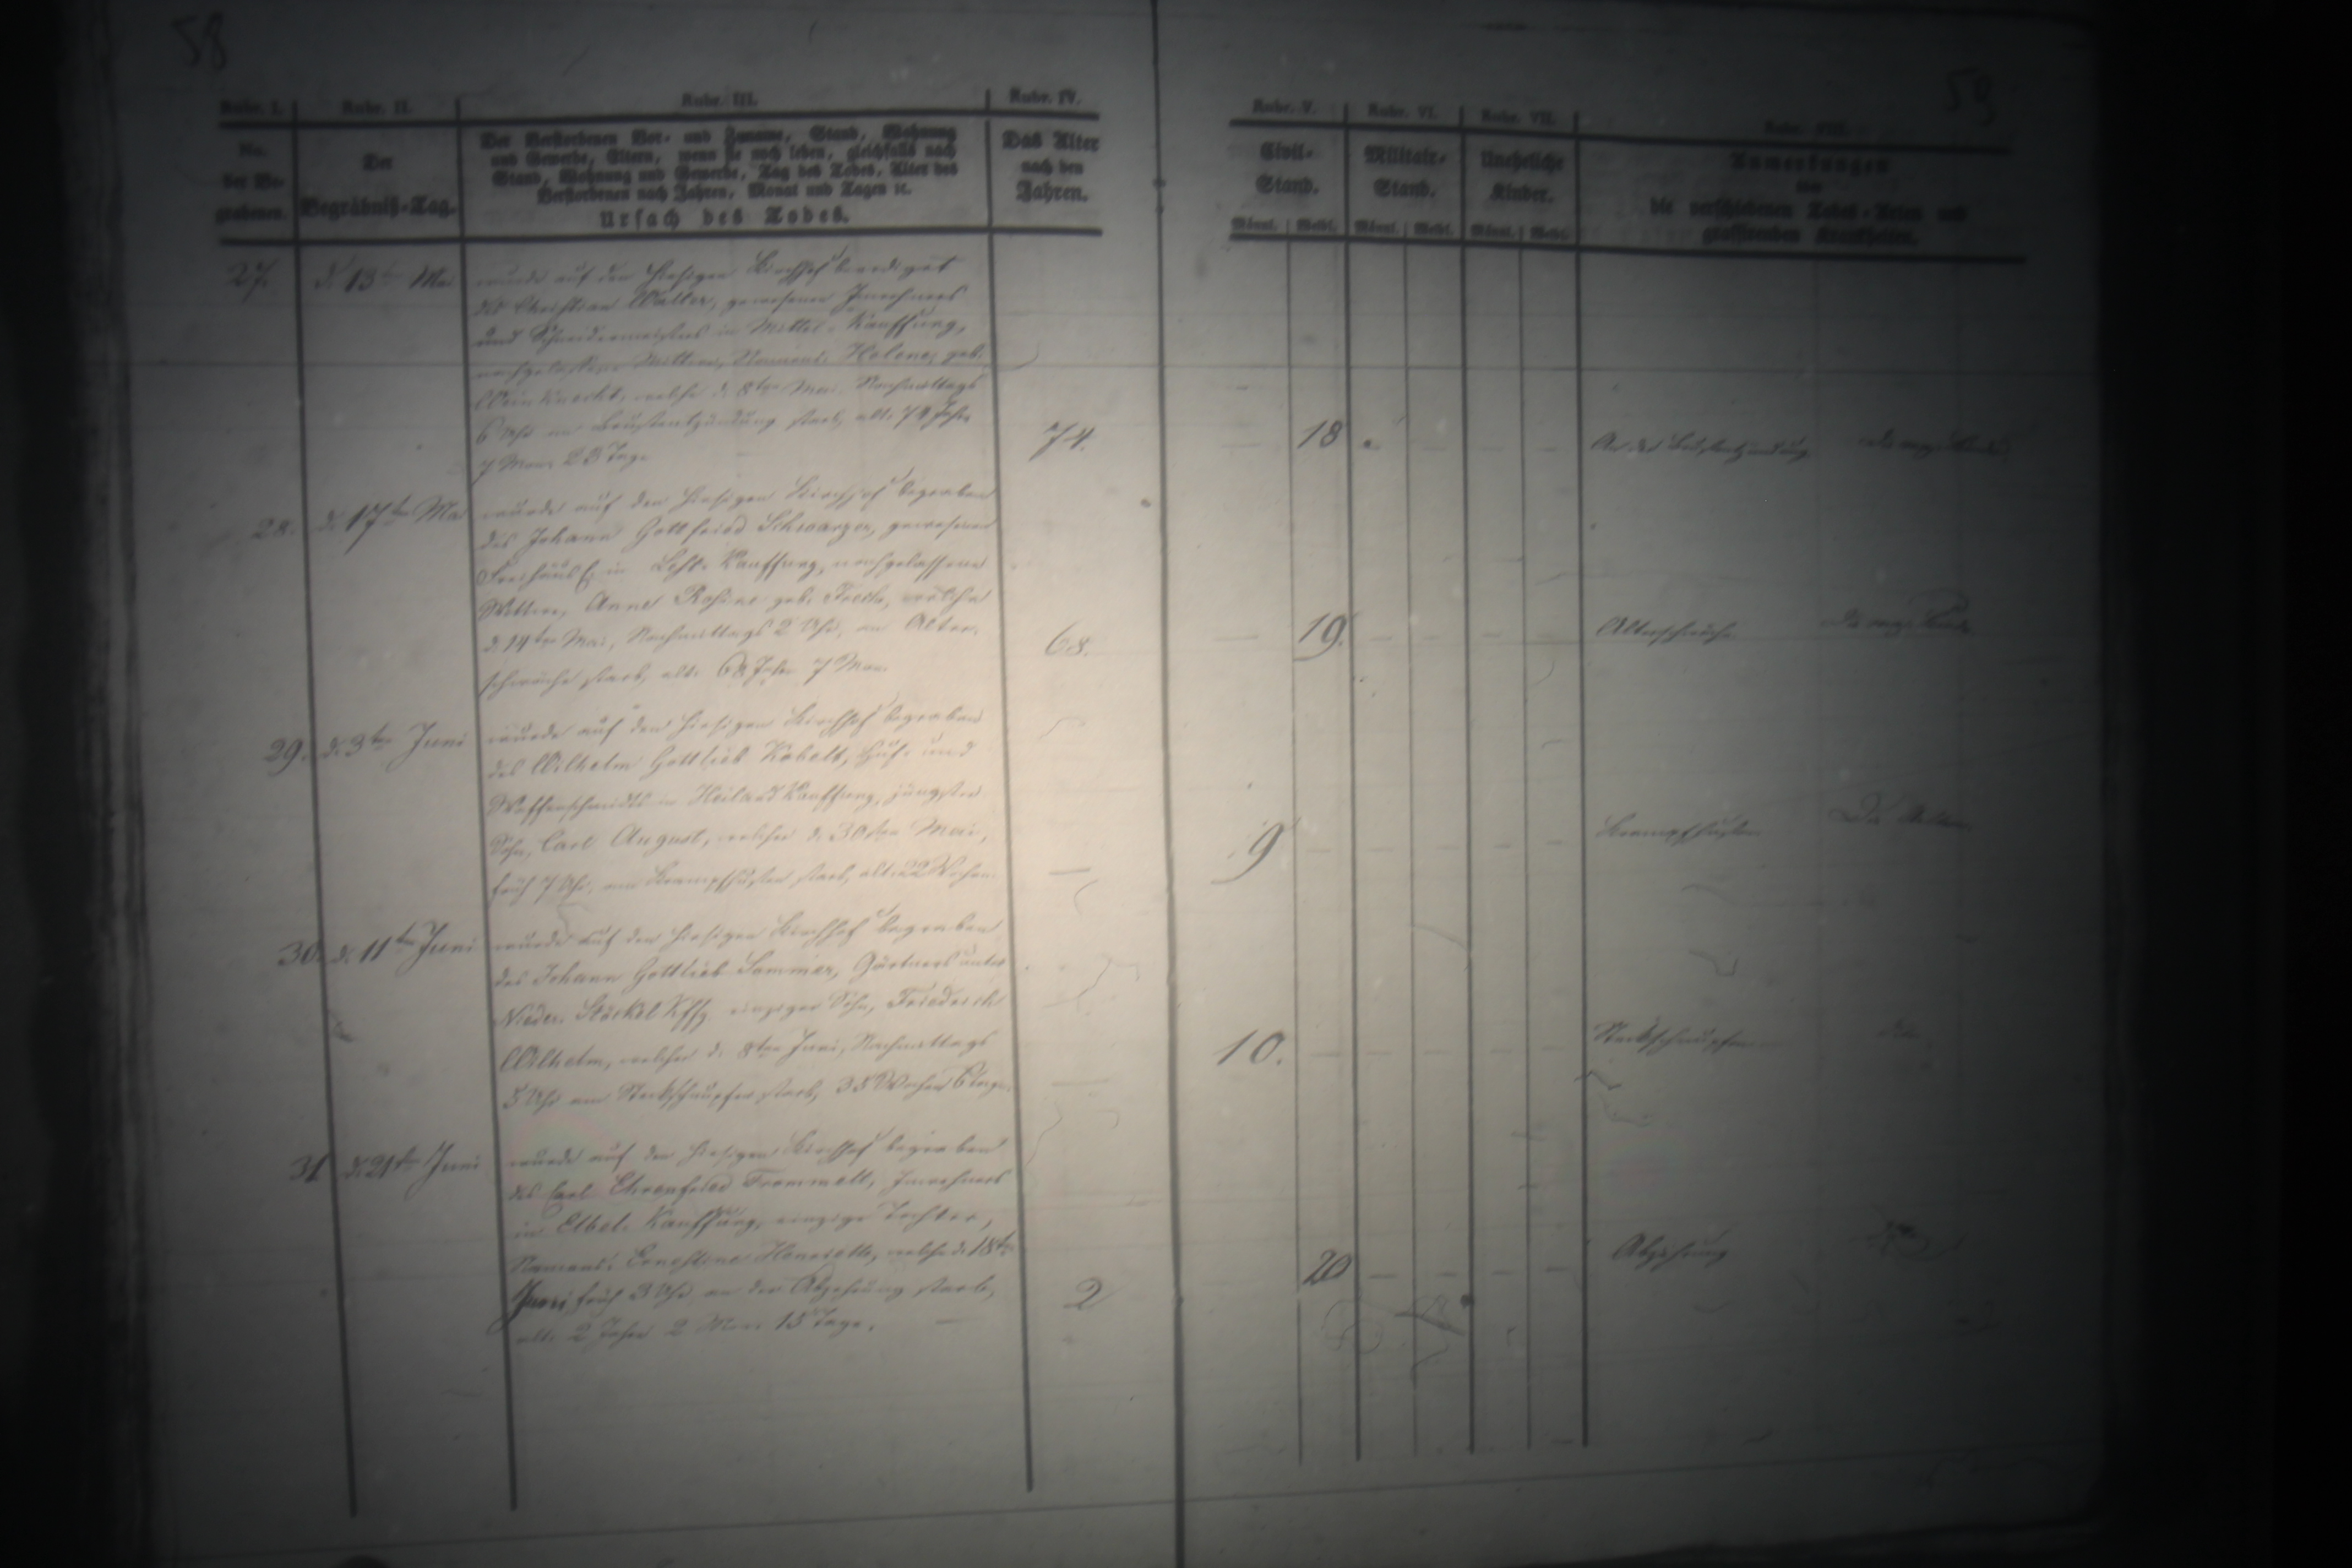 58
59
Rubr. I. Rubr. II. Rubr. III. Rubr. IV. Rubr. V. Rubr. VI. Rubr. VII. Rubr. VIII.
No. der Be-grabenen.
Der Begräbniß-Tag.
Der Verstorbenen Vor- und Zuname, Stand, Wohnung
und Gewerbe, Eltern, wenn sie noch leben, gleichfalls nach
Stand, Wohnung und Gewerbe, Tag des Todes, Alter des
Verstorbenen nach Jahren, Monat und Tagen ꝛc.
Ursach des Todes.
Das Alter
nach den
Jahren.
Civil-
Stand.
Männl. Weibl.
Militair-
Stand.
Männl. Weibl.
Uneheliche
Kinder.
Männl. Weibl.
Anmerkungen
über
die verschiedenen Todes-Arten und
grassirenden Krankheiten.
27. d. 13ten Mai wurde auf den hiesigen Kirchhof beerdiget
des Christian Walter, gewesener Inwohners
und Schneidermeisters in Mittel-Kauffung,
nachgelassene Wittwe, Namens: Helene, geb.
welche d. 8ten Mai Nachmittags
6 Uhr an Brustentzündung starb, alt: 74 Jahr
7 Mon. 23 Tage
74. 18
An der Brustentzündung
28. d. 17ten Mai wurde auf den hiesigen Kirchhof begraben
des Johann Gottfried Schwarzer, gewesenen
Freihäusl. in Kauffung, nachgelassene
Wittwe, Anne Rosine geb. welche
d. 14ten Mai, Nachmittags 2 Uhr, an Alter-
schwäche starb, alt: 68 Jahr 7 Mon.
68. 19.
Alterschwäche
29. d. 3ten Juni wurde auf den hiesigen Kirchhof begraben
des Wilhelm Gottlieb Kobelt, Huf- und
Waffenschmidts in Heiland Kauffung, jüngster
Sohn, Carl August, welcher d. 30sten Mai,
früh 7 Uhr, am Krampfhusten starb, alt: 22 Wochen
— 9
Krampfhusten
30. d. 11ten Juni wurde auf den hiesigen Kirchhof begraben
des Johann Gottlieb Sommer, Gärtners unter
Nieder Stöckel Kffg. einziger Sohn, Friedrich
Wilhelm, welcher d. 8ten Juni, Nachmittags
5 Uhr am Steckschnupfen starb, 38 Wochen 6 Tage
— 10.
Steckschnupfen
31. d. 21ten Juni wurde auf den hiesigen Kirchhof begraben
des Carl Ehrenfried Frommelt, Inwohners
in Elbel Kauffung, einzige Tochter,
Namens: Ernestine Henriette, welche d. 18ten
Juni früh 3 Uhr an der Abzehrung starb,
alt: 2 Jahr 2 Mon. 15 Tage.
2 20
Abzehrung